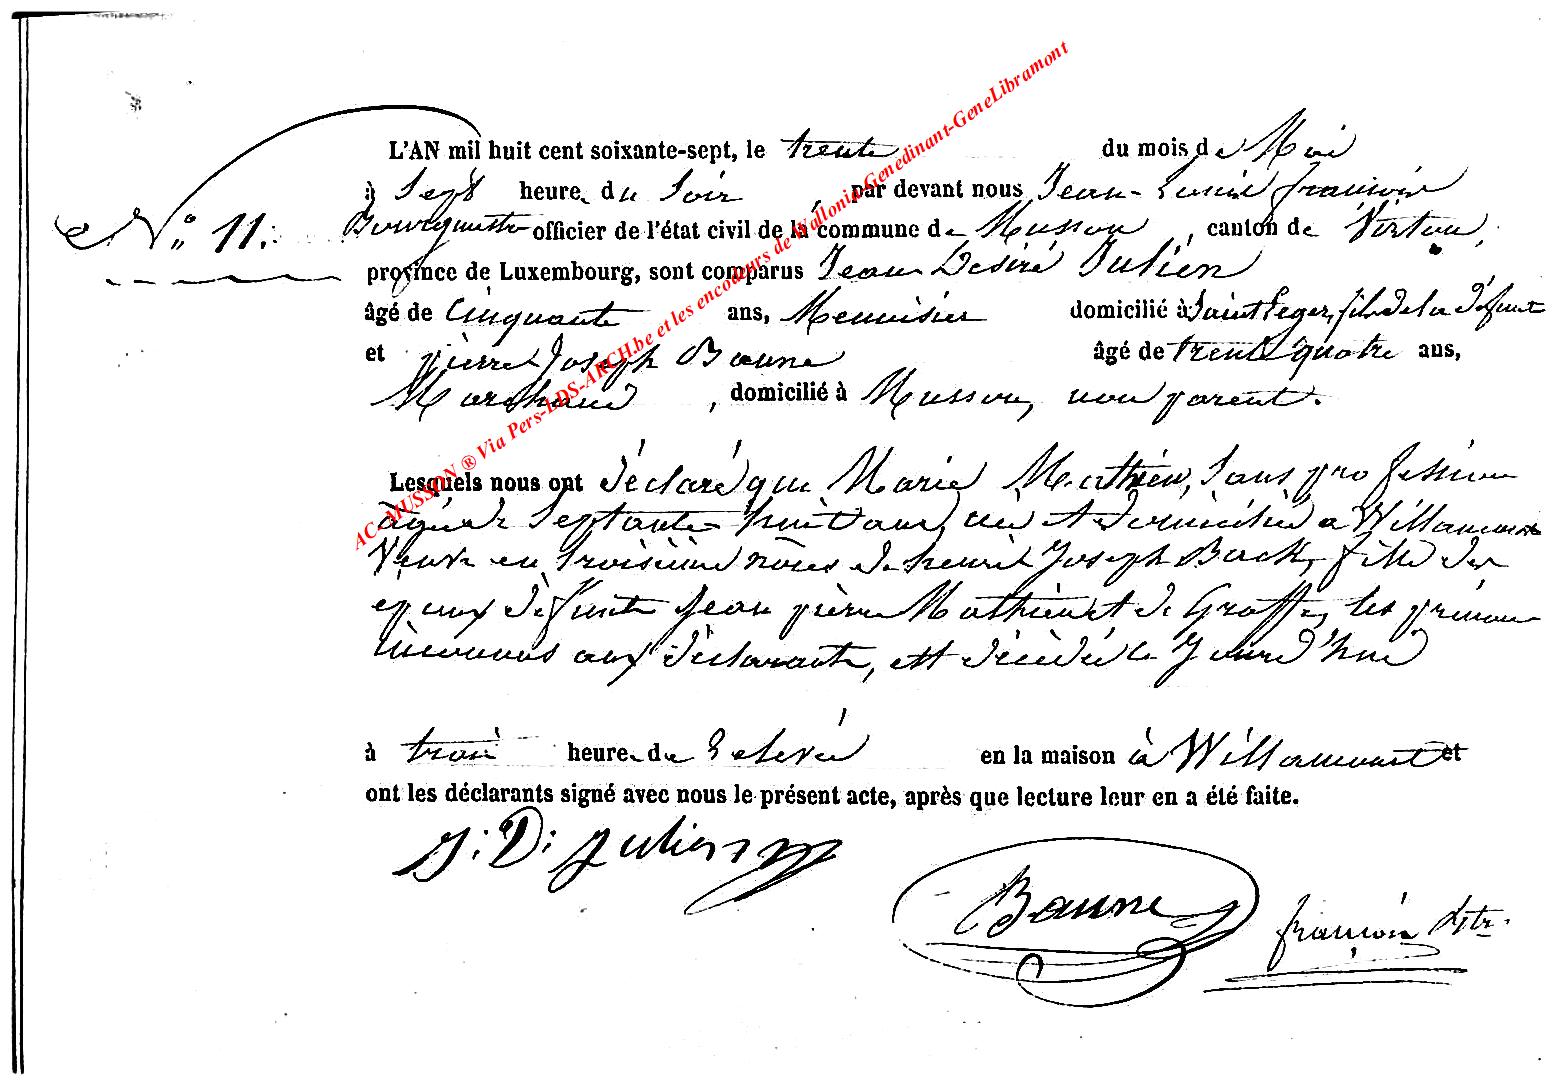 L'AN mil huit cent soixante-sept, le trente du mois de Mai
à Sept heures du Soir par devant nous Jean-Louis françois
N° 11. Bourguette officier de l'état civil de la commune de Musson, canton de Virton,
province de Luxembourg, sont comparus Jean Désiré Julien
âgé de Cinquante ans, Menuisier domicilié à Saint Leger, fils de la défunte
et pierre Joseph Baune âgé de trente quatre ans,
Marchand, domicilié à Musson, non parent.
Lesquels nous ont déclaré que Marie Mathieu, Sans profession
âgée de Septante huit ans, née et domiciliée à Willancourt
Veuve en troisième nôces de henri Joseph Back, fille des
epoux défunts Jean pierre Mathieu et de Groffe, les prénoms
inconnus aux déclarants, est décédée le Jourd'hui
à trois heures de relevée en la maison à Willancourt et
ont les déclarants signé avec nous le présent acte, après que lecture leur en a été faite.
J: D: Julien
Baune
françois
AC-MUSSON ® Via Pers-LDS-ARCH.be et les encodeurs de Wallonia-Genedinant-GeneLibramont